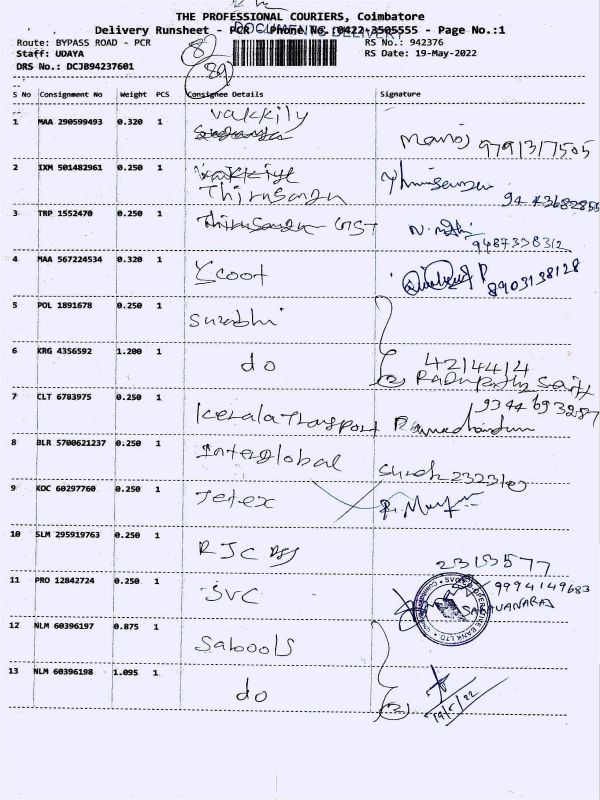 THE PROFESSIONAL COURIERS, Coimbatore
Delivery Runsheet - PCR Phone No.:0422-3505555 - Page No.:1
Route: BYPASS ROAD - PCR RS No.: 942376
Staff: UDAYA RS Date: 19-May-2022
DRS No.: DCJB94237601
S No Consignment No Weight PCS Consignee Details Signature
1 MAA 290599493 0.320 1 Vakkily Manoj 9791317505
2 IXM 501482961 0.250 1 Thirusangu
3 TRP 1552470 0.250 1 GST 9487338312
4 MAA 567224534 0.320 1 Ycoot 8903138128
5 POL 1891678 0.250 1 Surabhi
6 KRG 4356592 1.200 1 do 4214414
7 CLT 6783975 0.250 1 Kerala Transport
8 BLR 5700621237 0.250 1 Interglobal
9 KOC 60297760 0.250 1 Jetex
10 SLM 295919763 0.250 1 RJC
2313577
11 PRO 12842724 0.250 1 SVC 9994149683
12 NLM 60396197 0.875 1 Sabools
13 NLM 60396198 1.095 1 do 19/5/22